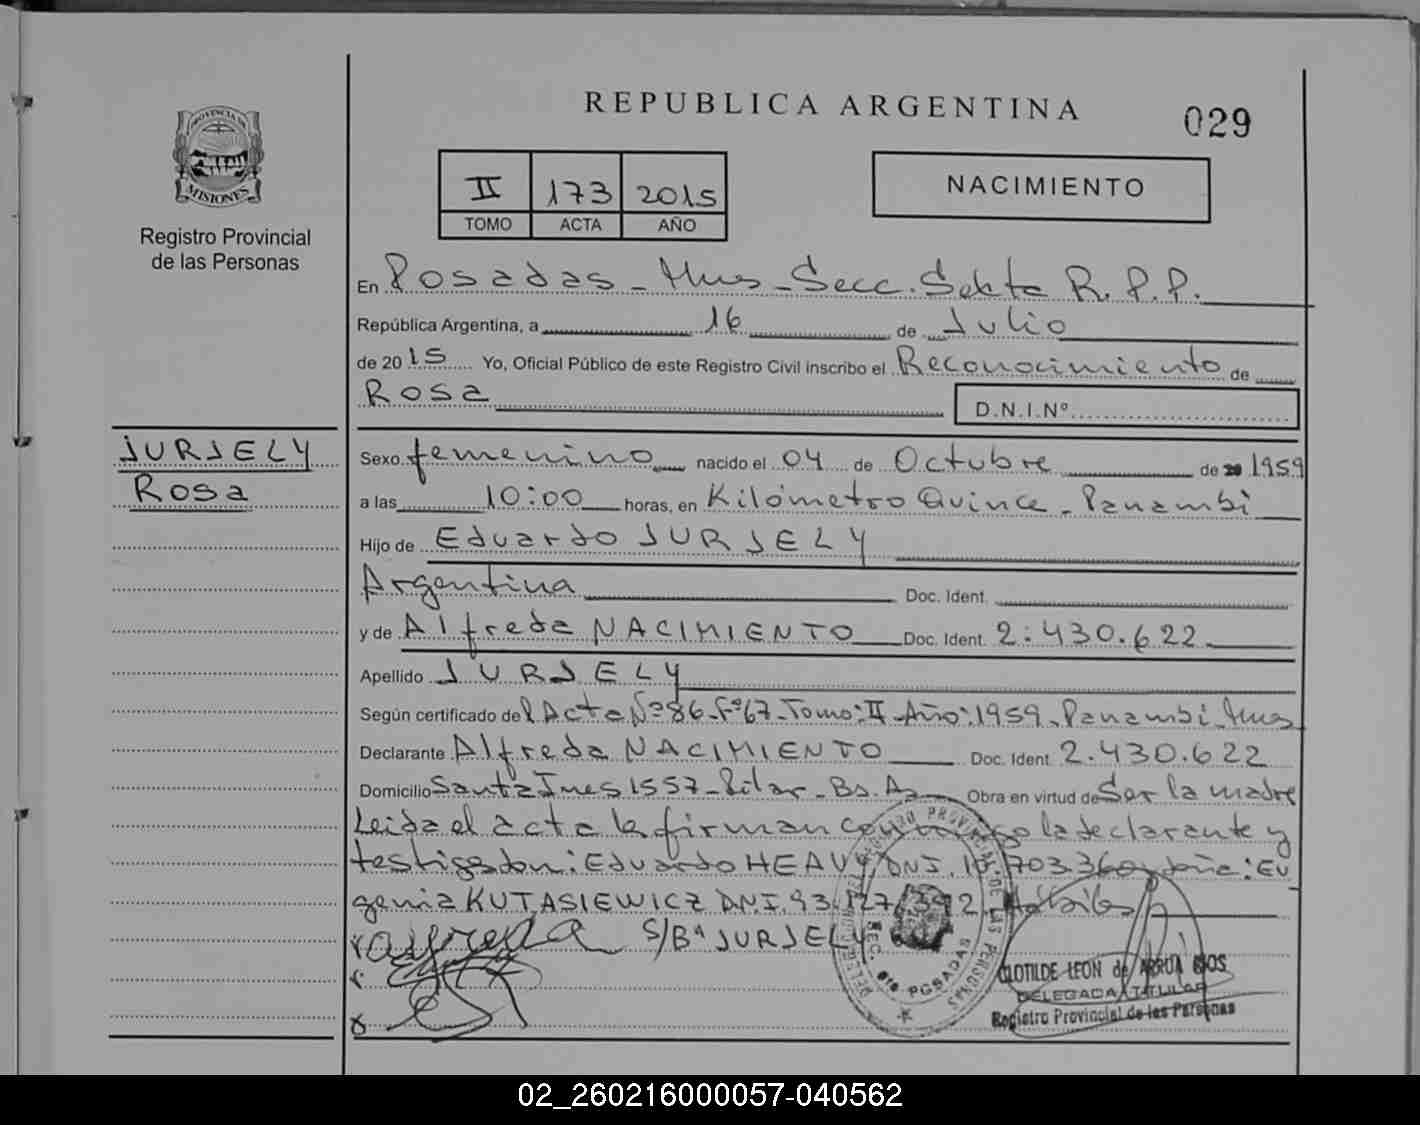 REPUBLICA ARGENTINA
029
PROVINCIA DE
MISIONES
Registro Provincial
de las Personas
II 173 2015
TOMO ACTA AÑO
NACIMIENTO
En Posadas - Mnes - Secc. Sexta R.P.P.
República Argentina, a 16 de Julio
de 2015 Yo, Oficial Público de este Registro Civil inscribo el Reconocimiento de
Rosa D.N.I.Nº
JURJELY
Rosa
Sexo femenino nacido el 04 de Octubre de 1959
a las 10:00 horas, en Kilómetro Quince - Panambí
Hijo de Eduardo JURJELY
Argentina Doc. Ident.
y de Alfreda NACIMIENTO Doc. Ident. 2.430.622
Apellido JURJELY
Según certificado del Acta Nº 86 - Fº 67 - Tomo: II - Año: 1959 - Panambí - Mnes
Declarante Alfreda NACIMIENTO Doc. Ident. 2.430.622
Domicilio Santa Ines 1557 - Pilar - Bs. As Obra en virtud de Ser la madre
Leida el acta la firman conmigo la declarante y
testigos don: Eduardo HEAVY DNI. 703.360 y doña: Eu
genia KUTASIEWICZ D.N.I. 93.127.392 - Hábiles
S/Bª JURJELY
REGISTRO PROVINCIAL DE LAS PERSONAS
SEC. POSADAS
CLOTILDE LEON de ARRUA
DELEGADA TITULAR
Registro Provincial de las Personas
02_260216000057-040562